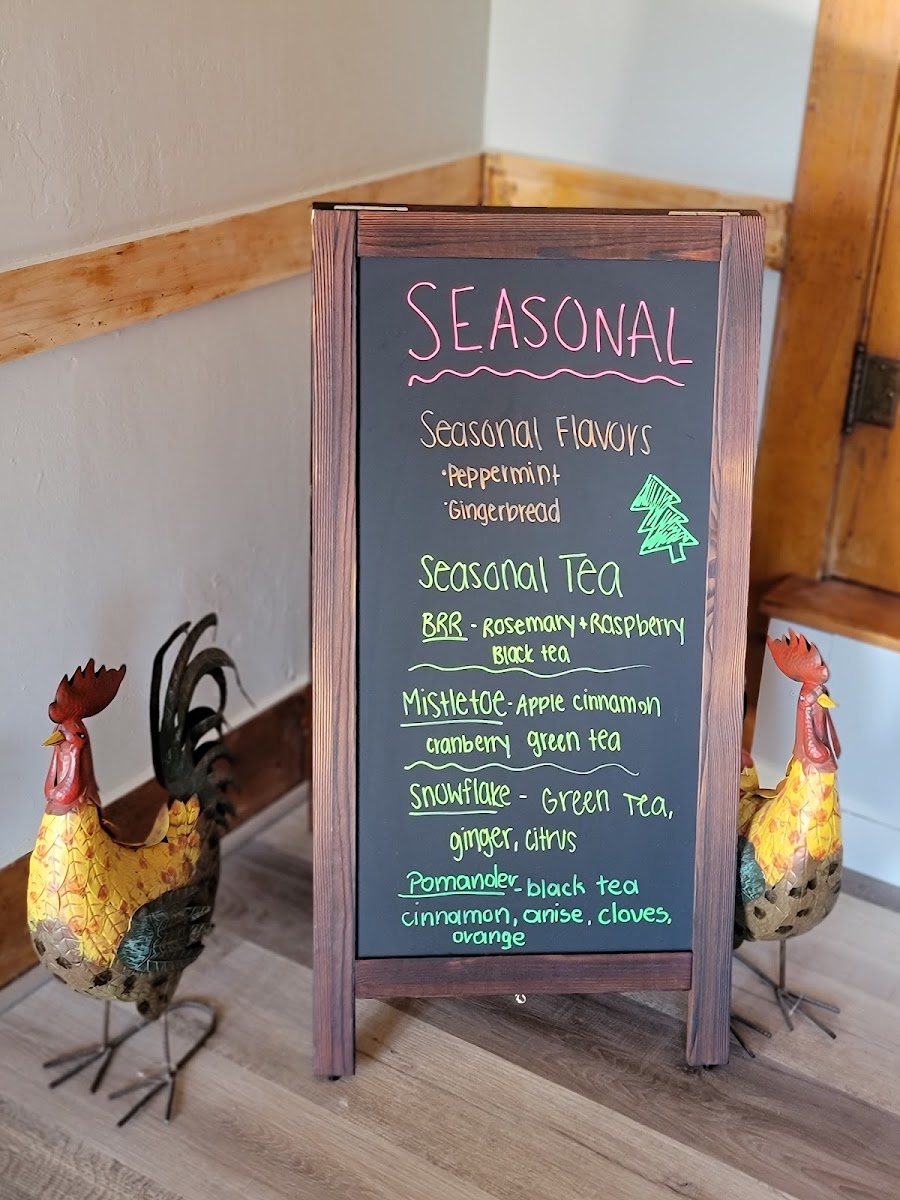 SEASONAL
Seasonal Flavors
•Peppermint
•Gingerbread
Seasonal Tea
BRR - Rosemary + Raspberry
Black tea
Mistletoe - Apple cinnamon
cranberry green tea
Snowflake - Green Tea,
ginger, citrus
Pomander - black tea
cinnamon, anise, cloves,
orange